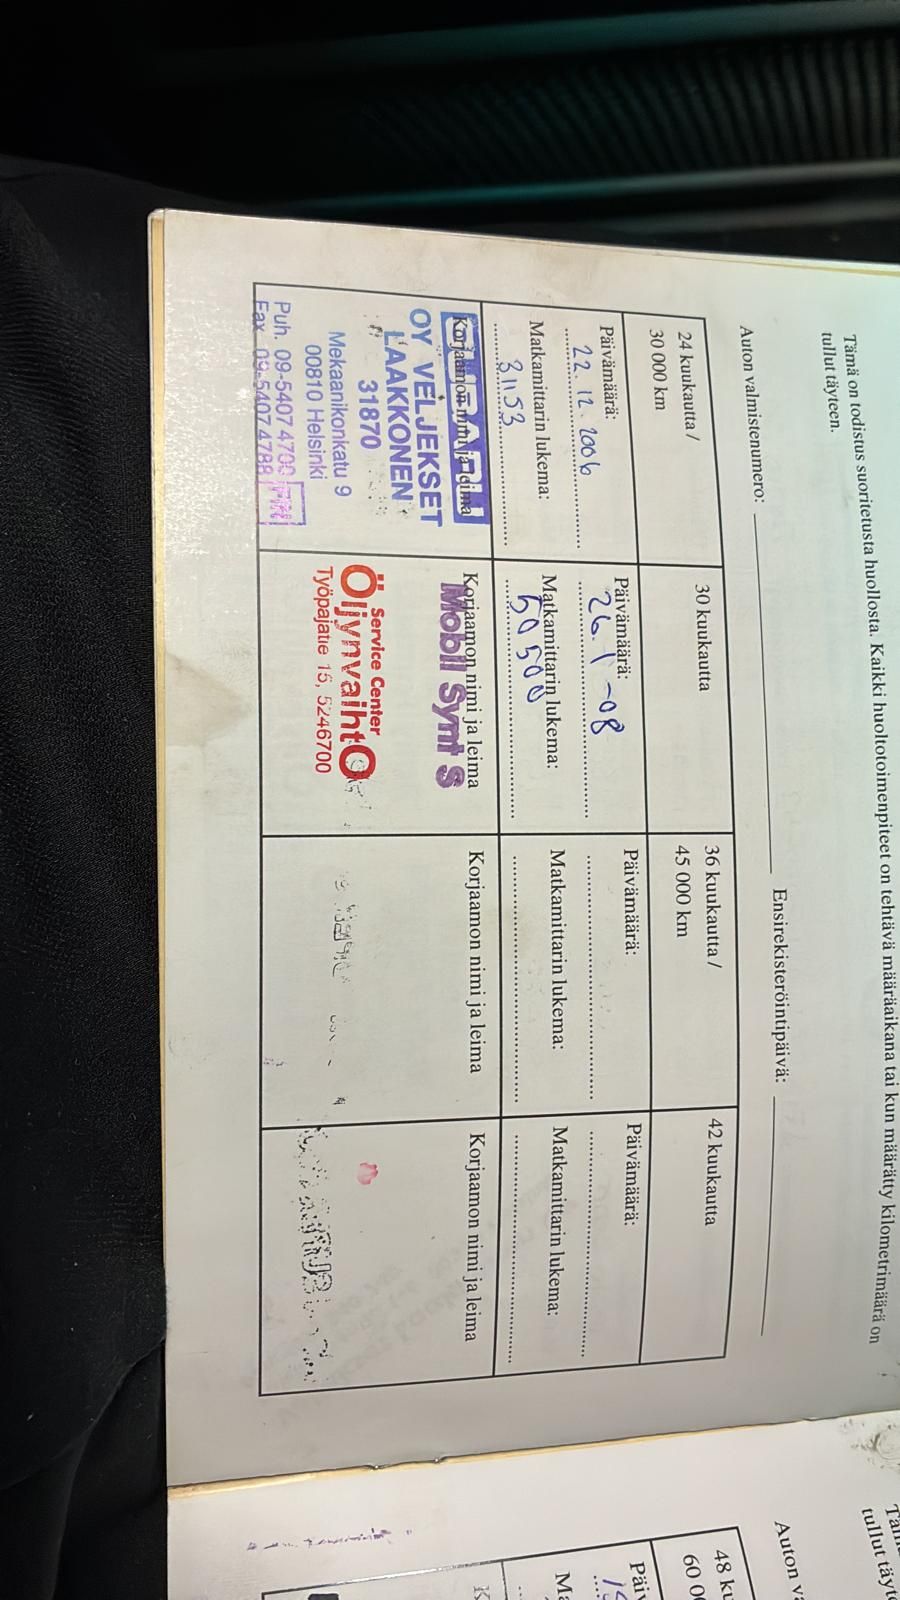 Tämä on todistus suoritetusta huollosta. Kaikki huoltotoimenpiteet on tehtävä määräaikana tai kun määrätty kilometrimäärä on
tullut täyteen.
Auton valmistenumero:
Ensirekisteröintipäivä:
24 kuukautta /
30 000 km
Päivämäärä:
22.12.2006
Matkamittarin lukema:
31153
Korjaamon nimi ja leima
OY VELJEKSET
LAAKKONEN
31870
Mekaanikonkatu 9
00810 Helsinki
Puh. 09-5407 4700
Fax 09-5407 4788
30 kuukautta
Päivämäärä:
26.1-08
Matkamittarin lukema:
50 500
Korjaamon nimi ja leima
Mobil Synt S
Service Center
ÖljynvaihtO
Työpajatie 15, 5246700
36 kuukautta /
45 000 km
Päivämäärä:
Matkamittarin lukema:
Korjaamon nimi ja leima
42 kuukautta
Päivämäärä:
Matkamittarin lukema:
Korjaamon nimi ja leima
tullut täyte
Auton va
48 ku
60 00
Päiv
Ma
K